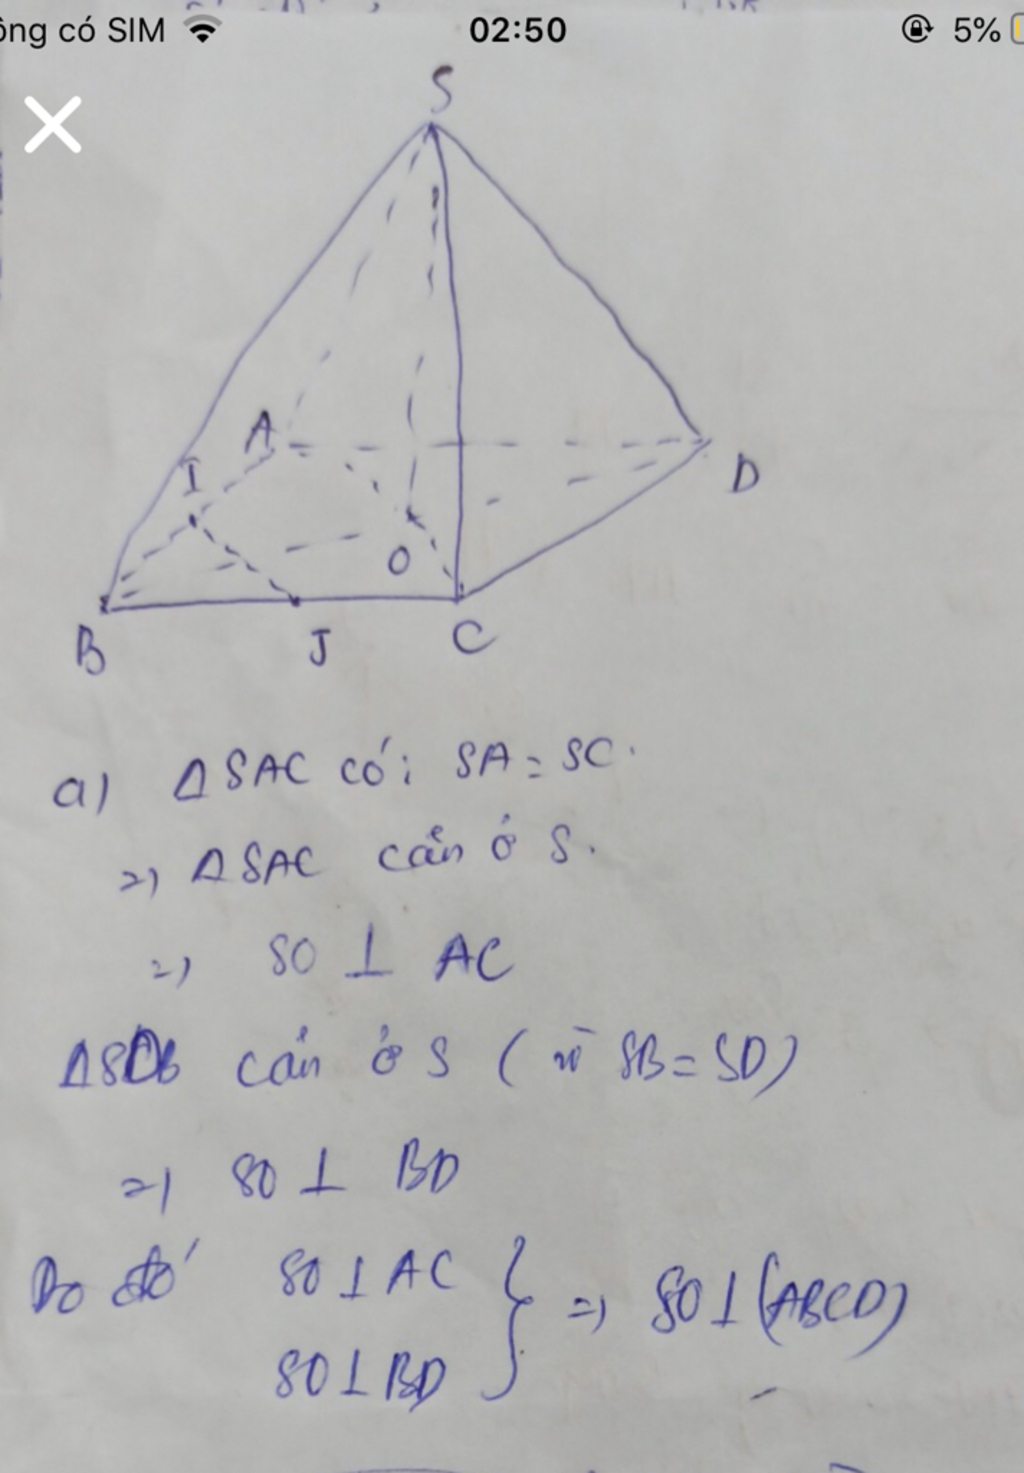 ông có SIM 02:50 5%
S
A
I
D
O
B
J
C
a) ΔSAC có: SA = SC.
=) ΔSAC cân ở S.
=) SO ⊥ AC
ΔSDB cân ở S ( vì SB = SD)
=) SO ⊥ BD
Do đó SO ⊥ AC } =) SO ⊥ (ABCD)
SO ⊥ BD